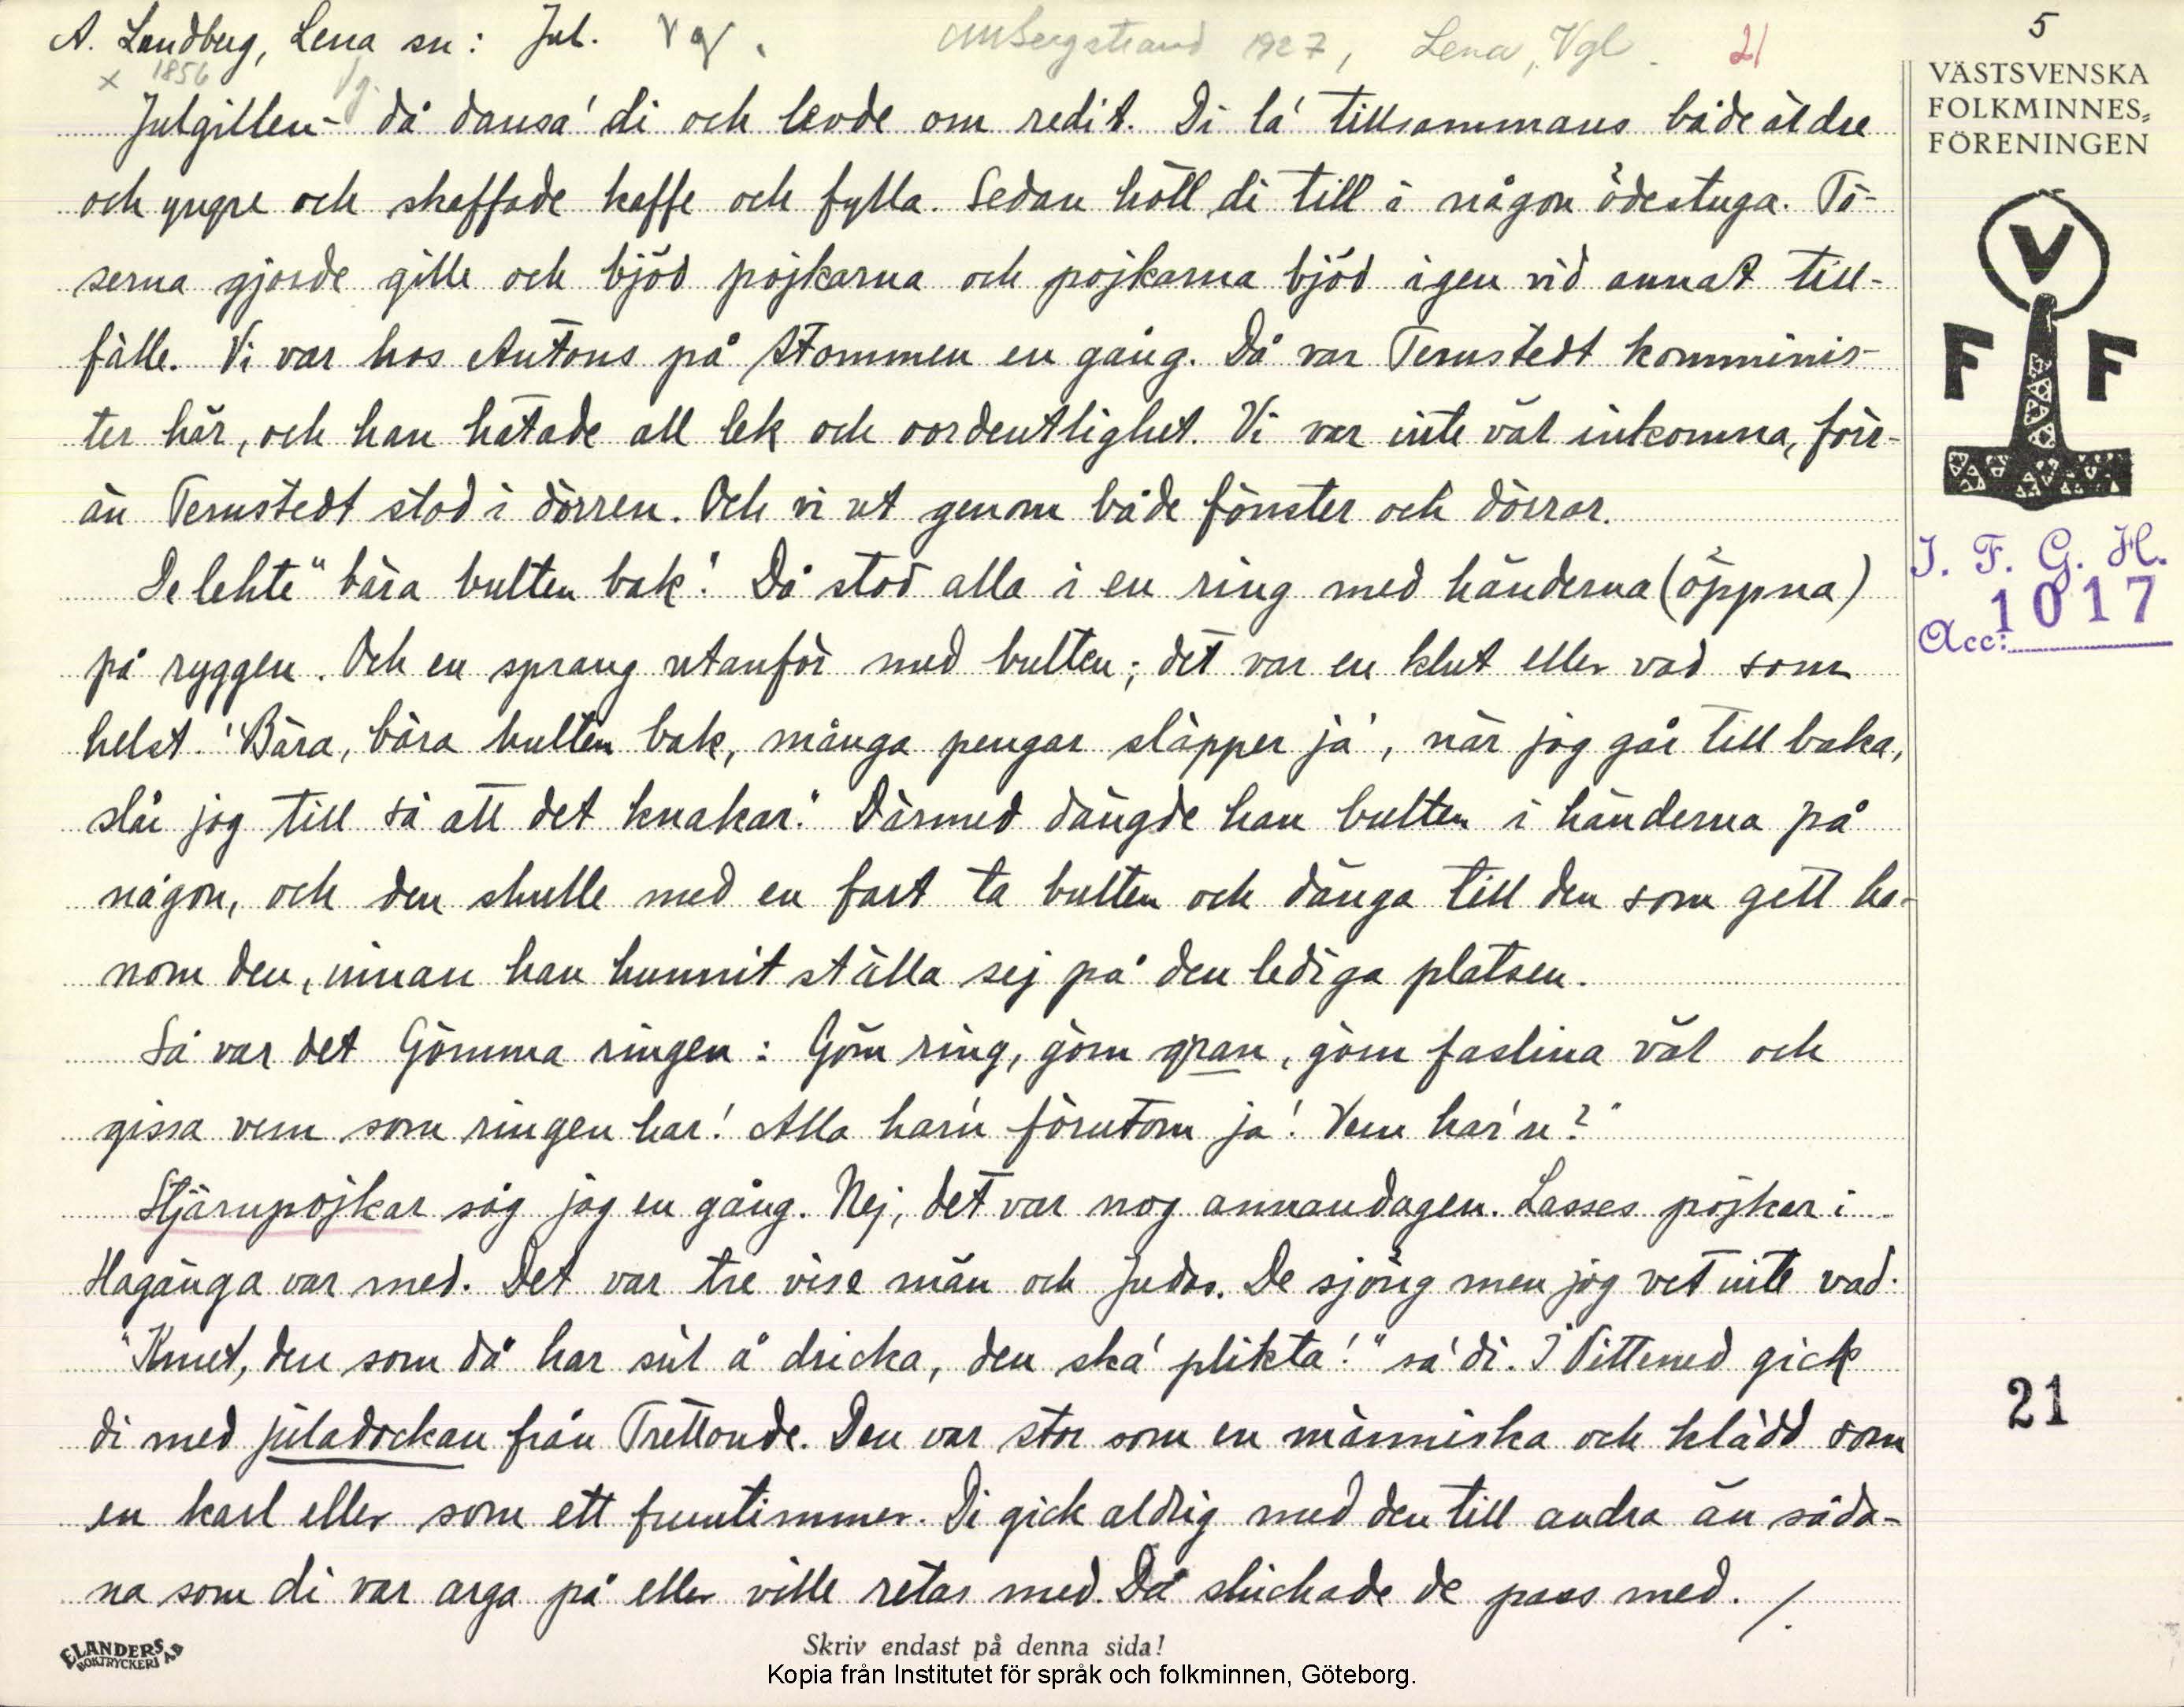 A. Landberg, Lena sn: Jul. Vg. CMBergstrand 1927, Lena, Vgl. 21 5
x 1856 Vg.
VÄSTSVENSKA
FOLKMINNES=
FÖRENINGEN
V
F F
I. F. G. H.
Acc: 1017
21
Julgillen - då dansa' di och levde om redit. Di la' tillsammans både äldre
och yngre och skaffade kaffe och fylla. Sedan höll di till i någon ödestuga. Tö-
serna gjorde gille och bjöd pojkarna och pojkarna bjöd igen vid annat till-
fälle. Vi var hos Antons på Stommen en gång. Då var Ternstedt komminis-
ter här, och han hatade all lek och oordentlighet. Vi var inte väl inkomna, förr-
än Ternstedt stod i dörren. Och vi ut genom både fönster och dörrar.
De lekte "bära bulten bak". Då stod alla i en ring med händerna (öppna)
på ryggen. Och en sprang utanför med bulten; det var en klut eller vad som
helst. "Bära, bära bulten bak, många pengar släpper ja', när jag går tillbaka,
slår jag till så att det knakar." Därmed dängde han bulten i händerna på
någon, och den skulle med en fart ta bulten och dänga till den som gett ho-
nom den, innan han hunnit ställa sej på den lediga platsen.
Så var det Gömma ringen: Göm ring, göm gran, göm faslina väl och
gissa vem som ringen har! Alla har'n förutom ja'! Vem har'n?"
Stjärnpojkar såg jag en gång. Nej, det var nog annandagen. Lasses pojkar i
Hagänga var med. Det var tre vise män och Judas. De sjöng men jag vet inte vad.
"Knut, den som då har sitt å dricka, den ska' plikta!" sa' di. I Vittened gick
di med juladockan från Trettonde. Den var stor som en människa och klädd som
en karl eller som ett fruntimmer. Di gick aldrig med den till andra än såda-
na som di var arga på eller ville retas med. Då skickade de pass med. /.
ELANDERS
BOKTRYCKERI AB
Skriv endast på denna sida!
Kopia från Institutet för språk och folkminnen, Göteborg.